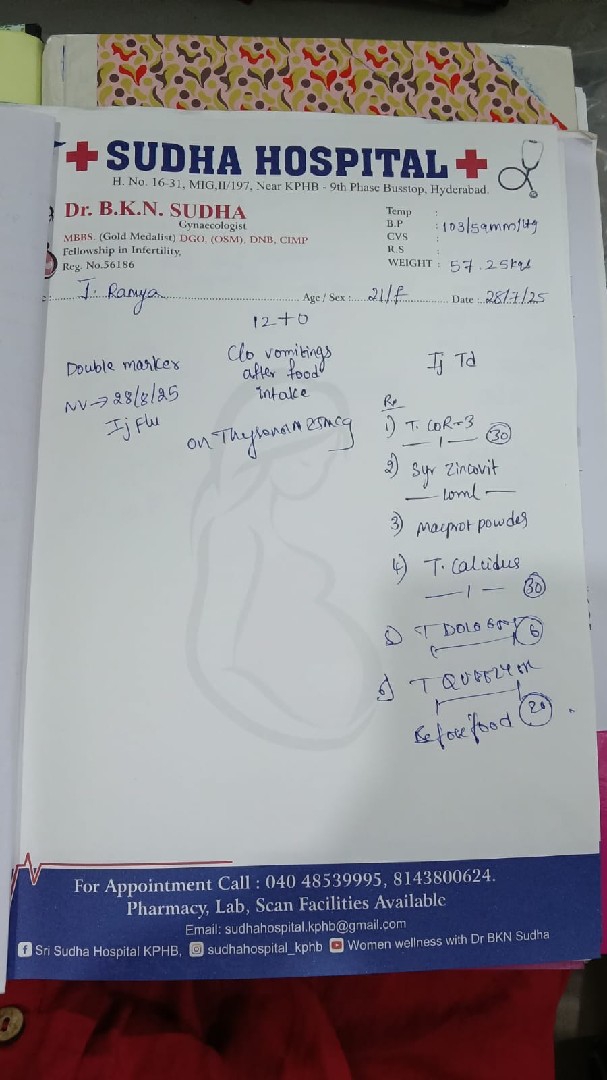 SUDHA HOSPITAL
H. No. 16-31, MIG,II/197, Near KPHB - 9th Phase Busstop, Hyderabad.
Dr. B.K.N. SUDHA
Gynaecologist
MBBS. (Gold Medalist) DGO, (OSM), DNB, CIMP
Fellowship in Infertility,
Reg. No.56186
Temp :
B.P : 103/59mm/Hg
CVS :
R.S :
WEIGHT : 57.25kgs
J. Ramya Age / Sex : 21/F Date : 28/7/25
12+0
Double marker
NV→28/8/25
Ij Flu
C/o vomitings
after food
intake
on 25mcg
Ij Td
Rx
1) T. COR-3
— 1 — 30
2) Syr Zincovit
— 10ml —
3) Macprot powder
4) T. Calcidus
— 1 — 30
5) T DOLO 6
6) T
Before food 20
For Appointment Call : 040 48539995, 8143800624.
Pharmacy, Lab, Scan Facilities Available
Email: sudhahospital.kphb@gmail.com
Sri Sudha Hospital KPHB, sudhahospital_kphb Women wellness with Dr BKN Sudha